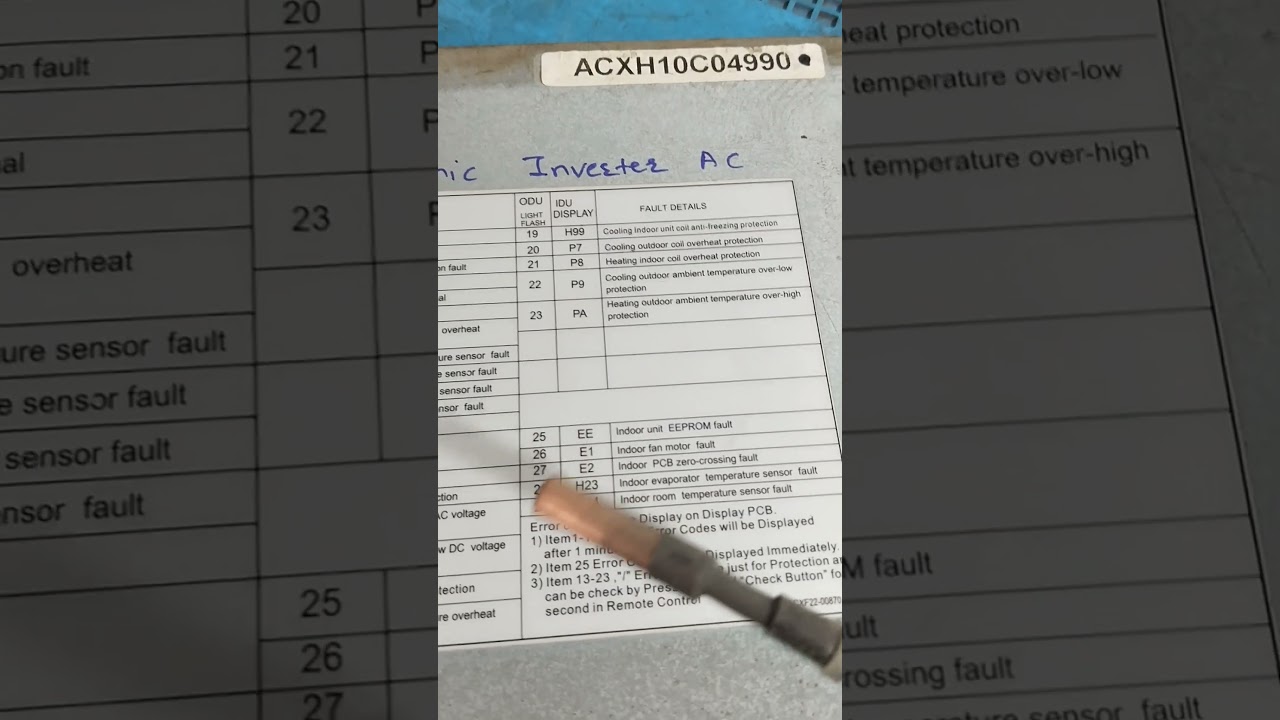 ACXH10C04990
Inverter AC
ODU LIGHT FLASH IDU DISPLAY FAULT DETAILS
19 H99 Cooling indoor unit coil anti-freezing protection
20 P7 Cooling outdoor coil overheat protection
on fault 21 P8 Heating indoor coil overheat protection
22 P9 Cooling outdoor ambient temperature over-low
protection
23 PA Heating outdoor ambient temperature over-high
protection
overheat
ure sensor fault
e sensor fault
sensor fault
nsor fault
25 EE Indoor unit EEPROM fault
26 E1 Indoor fan motor fault
27 E2 Indoor PCB zero-crossing fault
H23 Indoor evaporator temperature sensor fault
Indoor room temperature sensor fault
ction
AC voltage
w DC voltage
tection
re overheat
Error Display on Display PCB.
1) Item1- Codes will be Displayed
after 1 Displayed Immediately.
2) Item 25 Error just for Protection
3) Item 13-23 ,"/" "Check Button"
can be check by
second in Remote Control
20
on fault 21
22
23
overheat
ure sensor fault
e sensor fault
sensor fault
nsor fault
25
26
27
eat protection
temperature over-low
temperature over-high
M fault
ult
rossing fault
temperature sensor fault